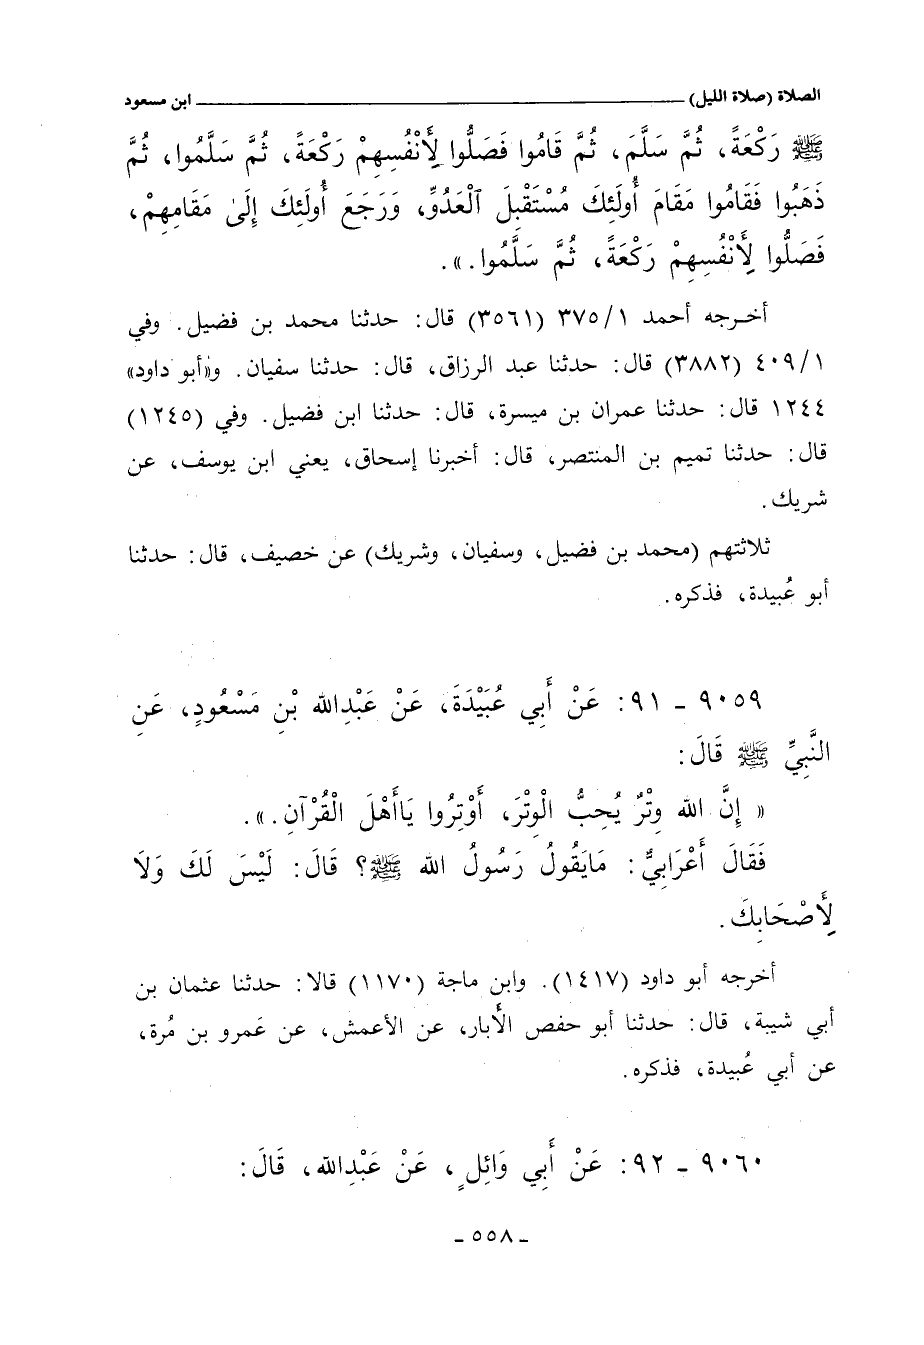 الصلاة (صلاة الليل) ــــــــــ ابن مسعود
ﷺ رَكْعَةً، ثُمَّ سَلَّمَ، ثُمَّ قَامُوا فَصَلُّوا لِأَنْفُسِهِمْ رَكْعَةً، ثُمَّ سَلَّمُوا، ثُمَّ
ذَهَبُوا فَقَامُوا مَقَامَ أُولَئِكَ مُسْتَقْبِلَ ٱلْعَدُوِّ، وَرَجَعَ أُولَئِكَ إِلَىٰ مَقَامِهِمْ،
فَصَلُّوا لِأَنْفُسِهِمْ رَكْعَةً، ثُمَّ سَلَّمُوا.».
أخرجه أحمد ٣٧٥/١ (٣٥٦١) قال: حدثنا محمد بن فضيل. وفي
٤٠٩/١ (٣٨٨٢) قال: حدثنا عبد الرزاق، قال: حدثنا سفيان. و«أبو داود»
١٢٤٤ قال: حدثنا عمران بن ميسرة، قال: حدثنا ابن فضيل. وفي (١٢٤٥)
قال: حدثنا تميم بن المنتصر، قال: أخبرنا إسحاق، يعني ابن يوسف، عن
شريك.
ثلاثتهم (محمد بن فضيل، وسفيان، وشريك) عن خصيف، قال: حدثنا
أبو عُبيدة، فذكره.
٩٠٥٩ - ٩١: عَنْ أَبِي عُبَيْدَةَ، عَنْ عَبْدِالله بْنِ مَسْعُودٍ، عَنِ
النَّبِيِّ ﷺ قَالَ:
« إِنَّ الله وِتْرٌ يُحِبُّ الْوِتْرَ، أَوْتِرُوا يَاأَهْلَ الْقُرْآنِ.».
فَقَالَ أَعْرَابِيٌّ: مَايَقُولُ رَسُولُ الله ﷺ؟ قَالَ: لَيْسَ لَكَ وَلَا
لِأَصْحَابِكَ.
أخرجه أبو داود (١٤١٧). وابن ماجة (١١٧٠) قالا: حدثنا عثمان بن
أبي شيبة، قال: حدثنا أبو حفص الأَبار، عن الأعمش، عن عَمرو بن مُرة،
عن أبي عُبيدة، فذكره.
٩٠٦٠ - ٩٢: عَنْ أَبِي وَائِلٍ، عَنْ عَبْدِالله، قَالَ:
- ٥٥٨ -